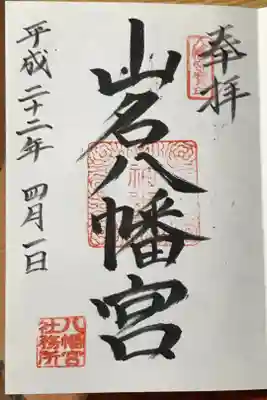 奉拝
山名八幡宮
平成二十二年 四月一日
八幡宮
社務所